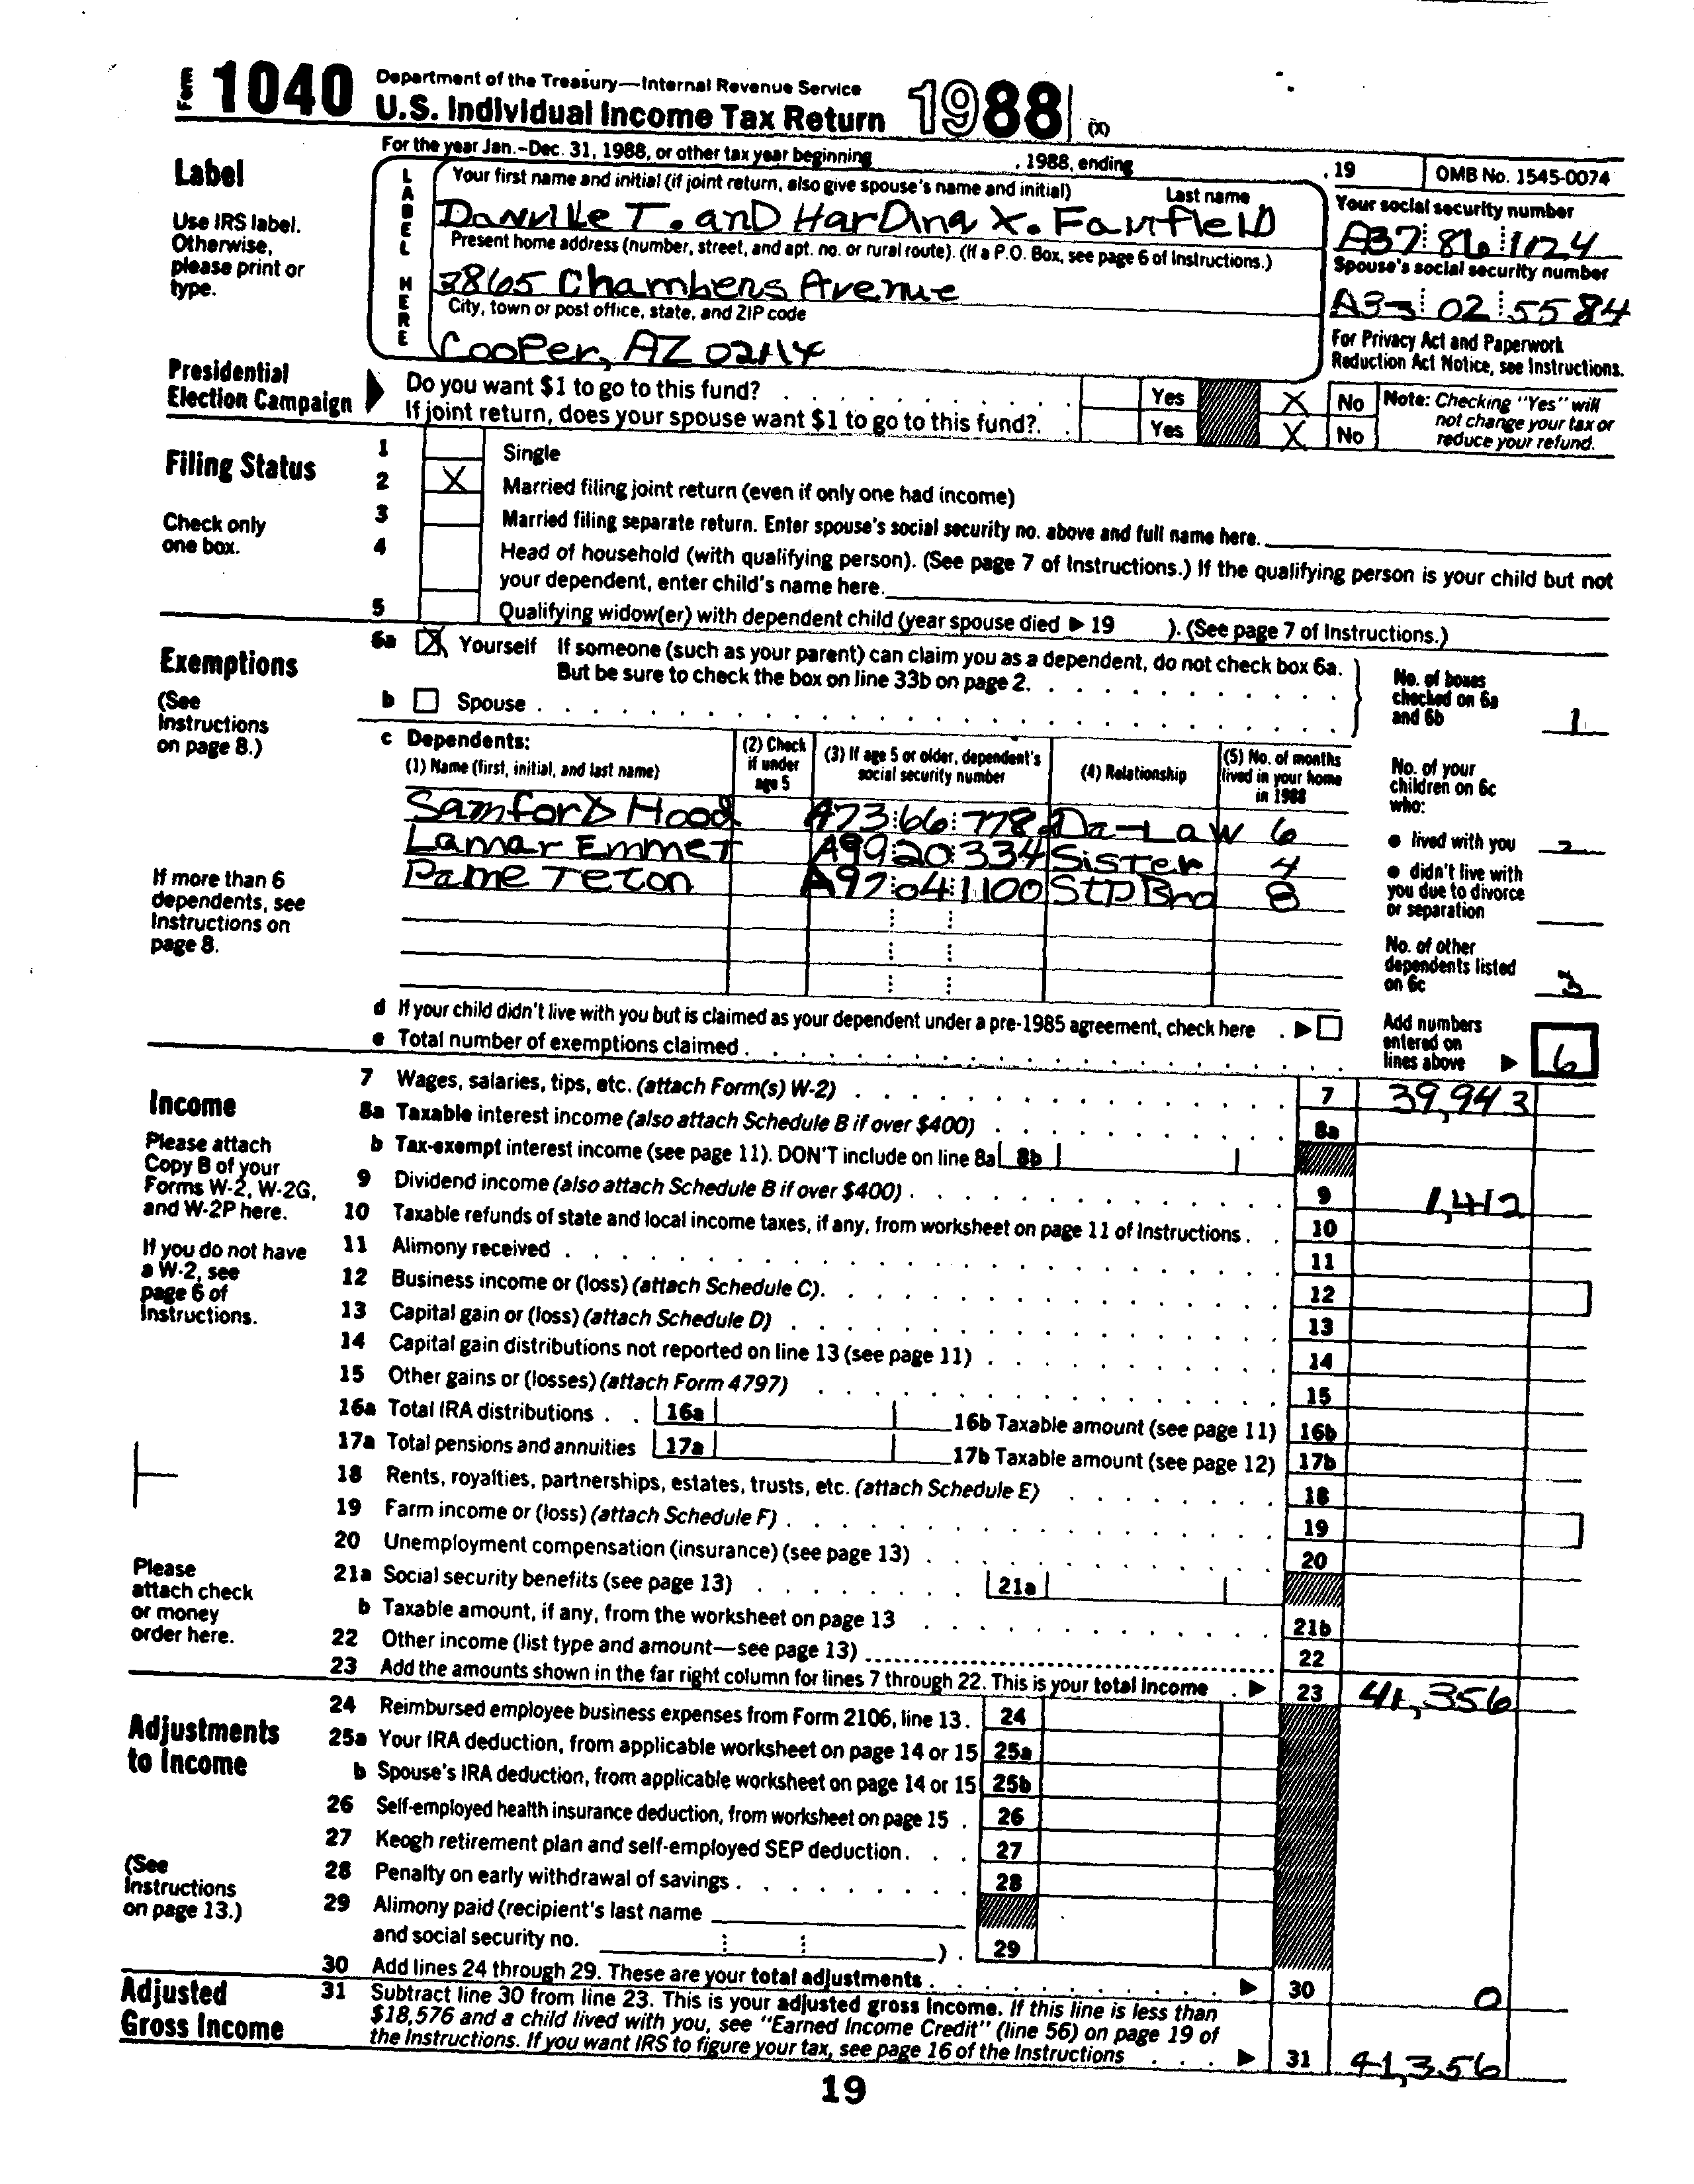 Form 1040 Department of the Treasury—Internal Revenue Service
U.S. Individual Income Tax Return 1988 (X)
For the year Jan.–Dec. 31, 1988, or other tax year beginning , 1988, ending , 19 OMB No. 1545-0074
Label
Use IRS label.
Otherwise,
please print or
type.
LABEL HERE
Your first name and initial (if joint return, also give spouse's name and initial) Last name
Danville T. and HarDina X. Fairfield
Present home address (number, street, and apt. no. or rural route). (If a P.O. Box, see page 6 of Instructions.)
3865 Chambers Avenue
City, town or post office, state, and ZIP code
Cooper, AZ
Your social security number
A37 86 1124
Spouse's social security number
A33 02 5584
For Privacy Act and Paperwork
Reduction Act Notice, see Instructions.
Presidential
Election Campaign
Do you want $1 to go to this fund? Yes X No
If joint return, does your spouse want $1 to go to this fund?. Yes X No
Note: Checking "Yes" will
not change your tax or
reduce your refund.
Filing Status
Check only
one box.
1 Single
2 X Married filing joint return (even if only one had income)
3 Married filing separate return. Enter spouse's social security no. above and full name here.
4 Head of household (with qualifying person). (See page 7 of Instructions.) If the qualifying person is your child but not
your dependent, enter child's name here.
5 Qualifying widow(er) with dependent child (year spouse died ▶ 19 ). (See page 7 of Instructions.)
Exemptions
(See
Instructions
on page 8.)
If more than 6
dependents, see
Instructions on
page 8.
6a X Yourself If someone (such as your parent) can claim you as a dependent, do not check box 6a.
But be sure to check the box on line 33b on page 2.
b Spouse
No. of boxes
checked on 6a
and 6b 1
c Dependents:
(1) Name (first, initial, and last name)
(2) Check
if under
age 5
(3) If age 5 or older, dependent's
social security number
(4) Relationship
(5) No. of months
lived in your home
in 1988
Samford Hood A73 66 778 Da-Law 6
Lamar Emmet A99 20 334 Sister 4
Pame Teton A97 04 1100 StpBro 8
No. of your
children on 6c
who:
● lived with you 2
● didn't live with
you due to divorce
or separation
No. of other
dependents listed
on 6c 3
d If your child didn't live with you but is claimed as your dependent under a pre-1985 agreement, check here ▶
e Total number of exemptions claimed
Add numbers
entered on
lines above ▶ 6
Income
Please attach
Copy B of your
Forms W-2, W-2G,
and W-2P here.
If you do not have
a W-2, see
page 6 of
Instructions.
Please
attach check
or money
order here.
7 Wages, salaries, tips, etc. (attach Form(s) W-2) 7 39,943
8a Taxable interest income (also attach Schedule B if over $400) 8a
b Tax-exempt interest income (see page 11). DON'T include on line 8a 8b
9 Dividend income (also attach Schedule B if over $400) 9 1,412
10 Taxable refunds of state and local income taxes, if any, from worksheet on page 11 of Instructions 10
11 Alimony received 11
12 Business income or (loss) (attach Schedule C). 12
13 Capital gain or (loss) (attach Schedule D) 13
14 Capital gain distributions not reported on line 13 (see page 11) 14
15 Other gains or (losses) (attach Form 4797) 15
16a Total IRA distributions 16a 16b Taxable amount (see page 11) 16b
17a Total pensions and annuities 17a 17b Taxable amount (see page 12) 17b
18 Rents, royalties, partnerships, estates, trusts, etc. (attach Schedule E) 18
19 Farm income or (loss) (attach Schedule F) 19
20 Unemployment compensation (insurance) (see page 13) 20
21a Social security benefits (see page 13) 21a
b Taxable amount, if any, from the worksheet on page 13 21b
22 Other income (list type and amount—see page 13) 22
23 Add the amounts shown in the far right column for lines 7 through 22. This is your total income ▶ 23 41,356
Adjustments
to Income
(See
Instructions
on page 13.)
24 Reimbursed employee business expenses from Form 2106, line 13. 24
25a Your IRA deduction, from applicable worksheet on page 14 or 15 25a
b Spouse's IRA deduction, from applicable worksheet on page 14 or 15 25b
26 Self-employed health insurance deduction, from worksheet on page 15 26
27 Keogh retirement plan and self-employed SEP deduction 27
28 Penalty on early withdrawal of savings 28
29 Alimony paid (recipient's last name
and social security no. ) 29
30 Add lines 24 through 29. These are your total adjustments ▶ 30 0
Adjusted
Gross Income
31 Subtract line 30 from line 23. This is your adjusted gross income. If this line is less than
$18,576 and a child lived with you, see "Earned Income Credit" (line 56) on page 19 of
the Instructions. If you want IRS to figure your tax, see page 16 of the Instructions ▶ 31 41,356
19